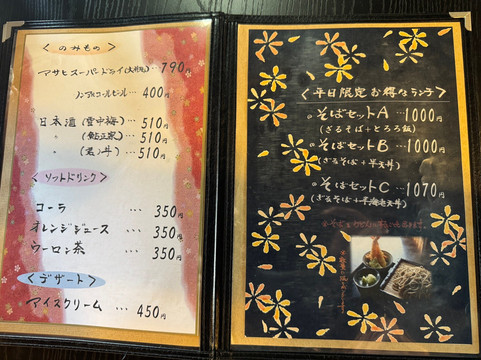 <のみもの>
アサヒスーパードライ(大瓶)…790円
ノンアルコールビール…400円
日本酒(雪中梅)…510円
〃(鮎正宗)…510円
〃(君の井)…510円
<ソフトドリンク>
コーラ…350円
オレンジジュース…350円
ウーロン茶…350円
<デザート>
アイスクリーム…450円
<平日限定お得なランチ>
そばセットA…1000円
(ざるそば+とろろ飯)
そばセットB…1000円
(ざるそば+半天丼)
そばセットC…1070円
(ざるそば+半海老天丼)